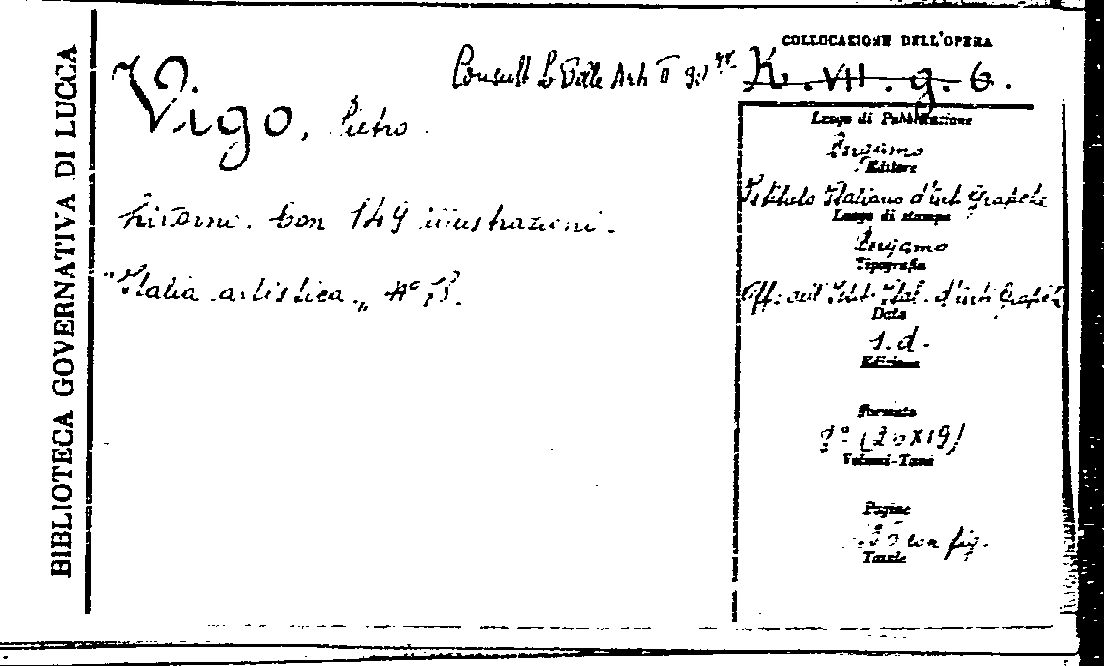 BIBLIOTECA GOVERNATIVA DI LUCCA
COLLOCAZIONE DELL'OPERA
Consult Arti II
K. VII. g. 6.
Vigo, Pietro.
Livorno. Con 149 illustrazioni.
"Italia artistica„ n°
Luogo di Pubblicazione
Bergamo
Editore
Istituto Italiano d'arti Grafiche
Luogo di stampa
Bergamo
Tipografia
Off. dell'Istit. Ital. d'arti Grafiche
Data
s.d.
Edizione
Formato
Volumi-Tomi
Pagine
con fig.
Tavole